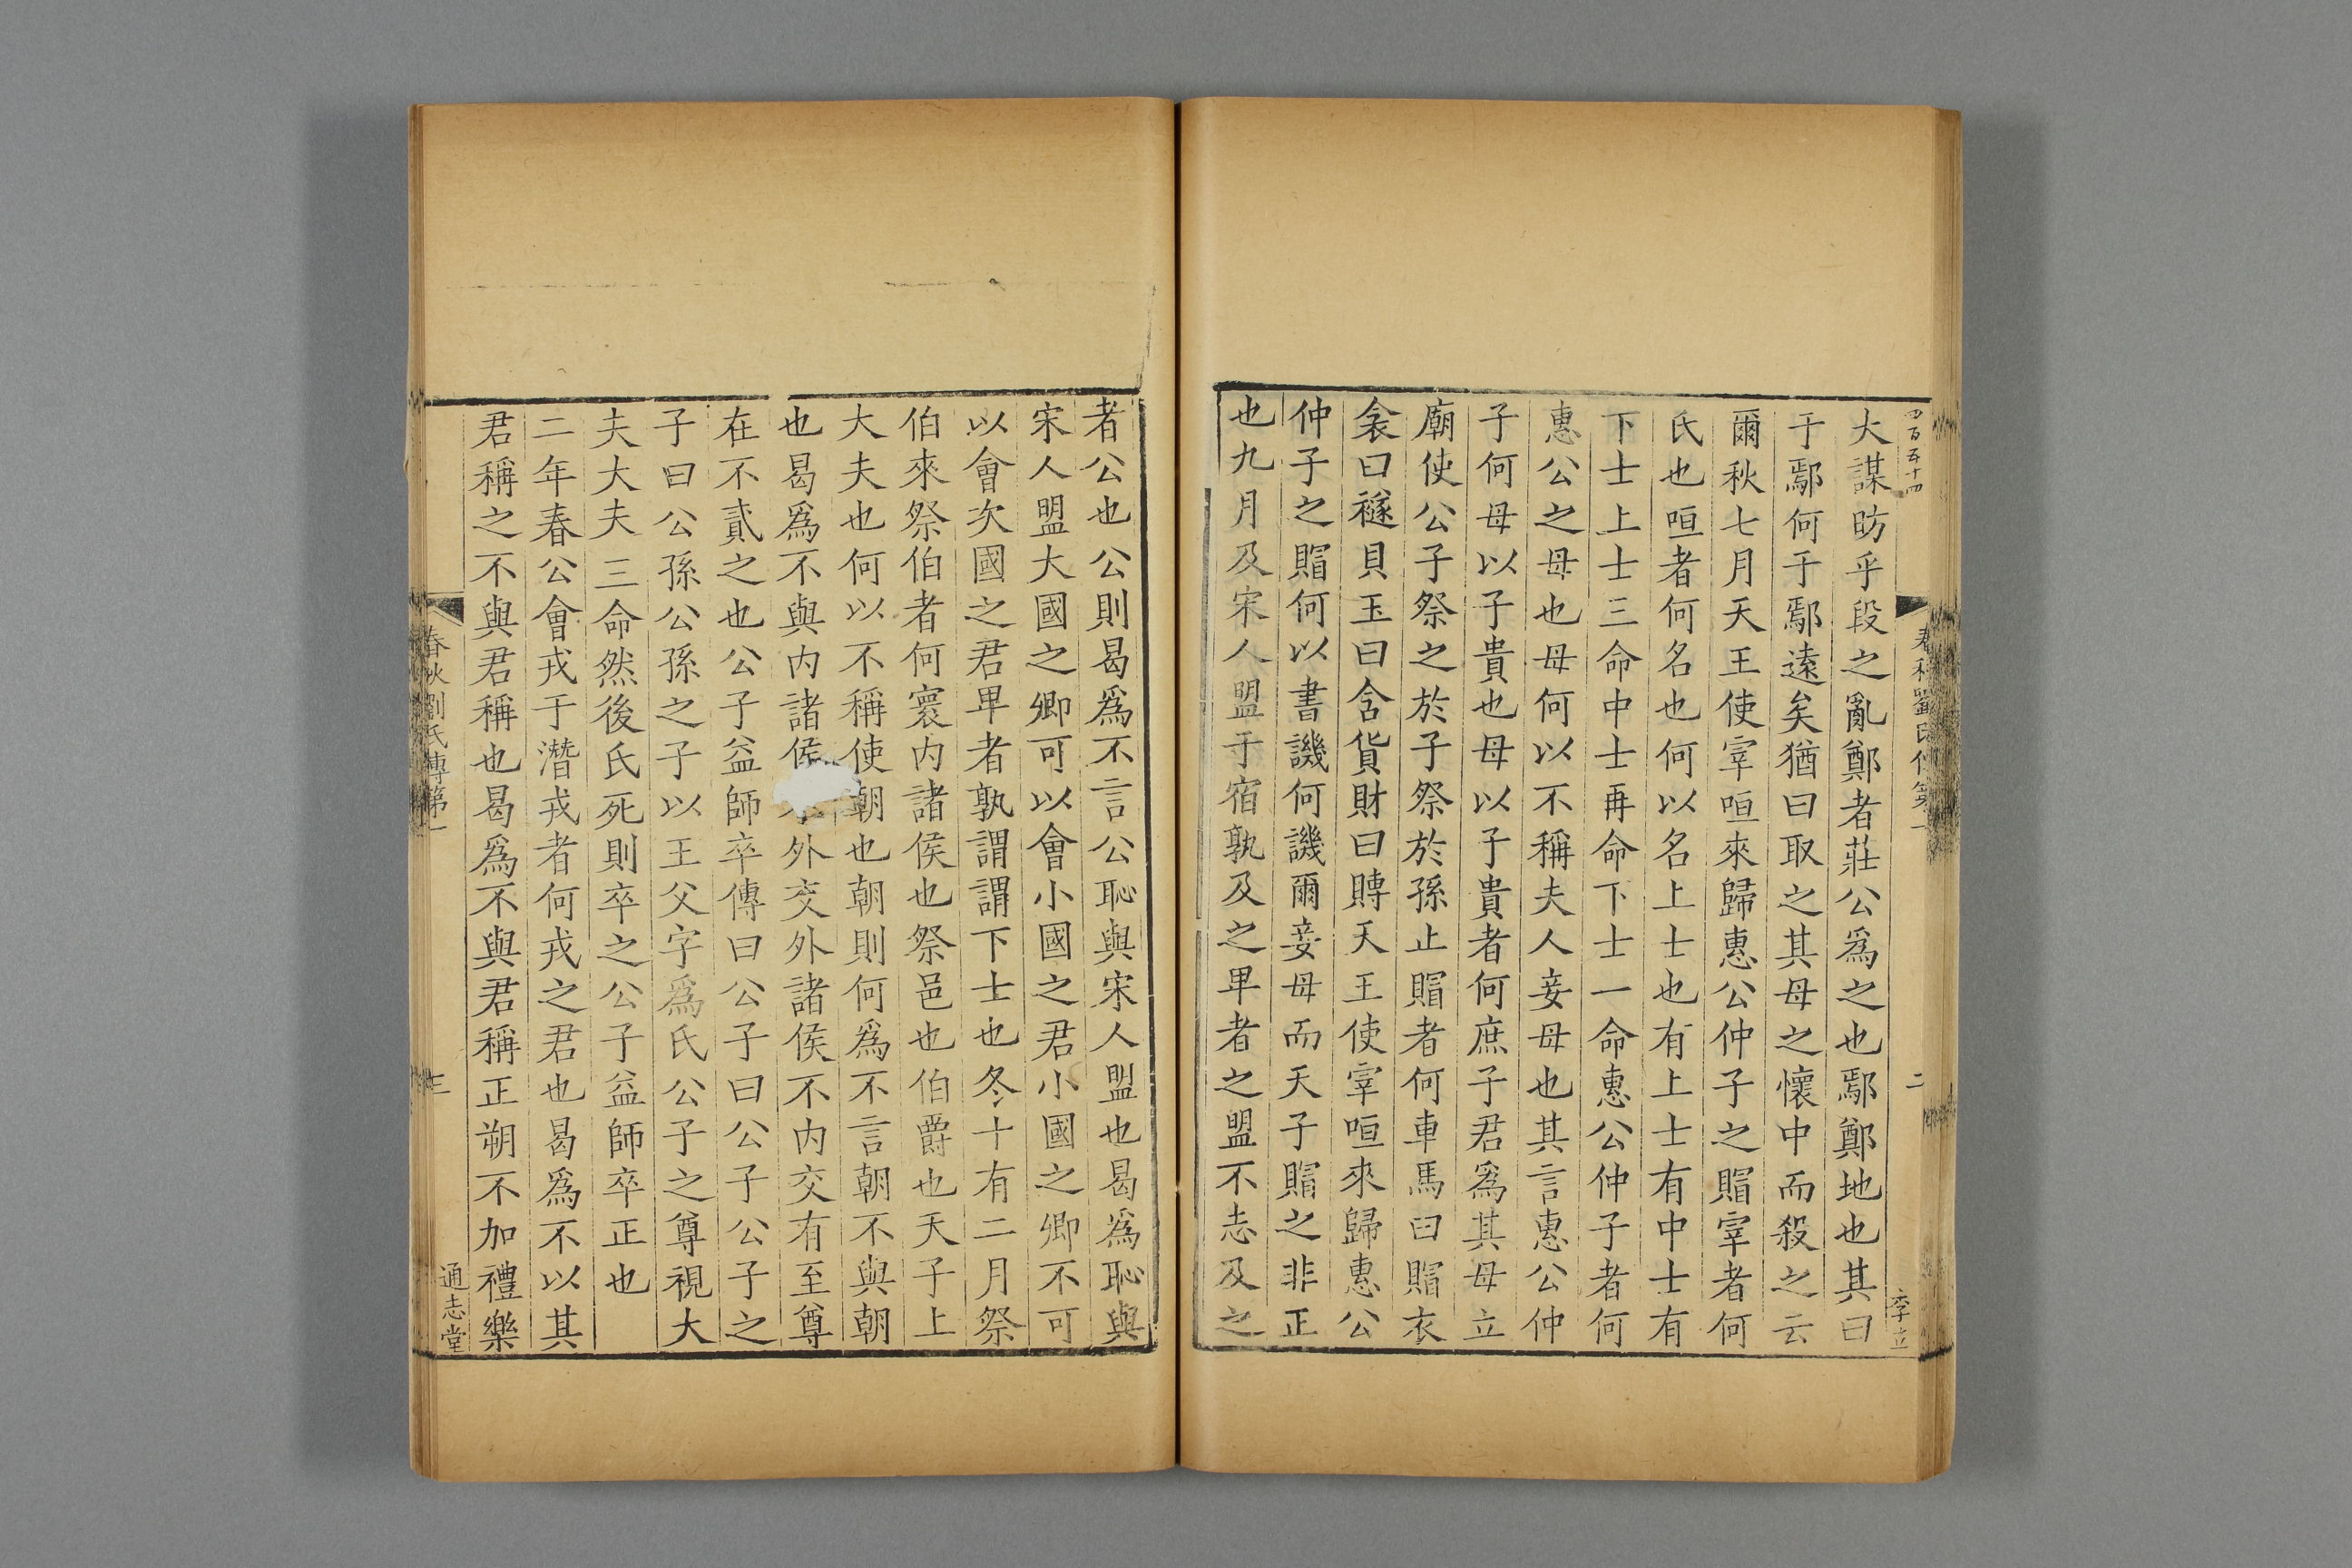 四百五十四
春秋劉氏傳第一
二
李立
大謀昉乎段之亂鄭者莊公爲之也鄢鄭地也其曰
于鄢何于鄢遠矣猶曰取之其母之懷中而殺之云
爾秋七月天王使宰咺來歸惠公仲子之賵宰者何
氏也咺者何名也何以名上士也有上士有中士有
下士上士三命中士再命下士一命惠公仲子者何
惠公之母也母何以不稱夫人妾母也其言惠公仲
子何母以子貴也母以子貴者何庶子君爲其母立
廟使公子祭之於子祭於孫止賵者何車馬曰賵衣
衾曰襚貝玉曰含貨財曰賻天王使宰咺來歸惠公
仲子之賵何以書譏何譏爾妾母而天子賵之非正
也九月及宋人盟于宿孰及之卑者之盟不志及之
者公也公則曷爲不言公恥與宋人盟也曷爲恥與
宋人盟大國之卿可以會小國之君小國之卿不可
以會次國之君卑者孰謂謂下士也冬十有二月祭
伯來祭伯者何寰内諸侯也祭邑也伯爵也天子上
大夫也何以不稱使朝也朝則何爲不言朝不與朝
也曷爲不與内諸侯外交外諸侯不内交有至尊
在不貳之也公子益師卒傳曰公子曰公子公子之
子曰公孫公孫之子以王父字爲氏公子之尊視大
夫大夫三命然後氏死則卒之公子益師卒正也
二年春公會戎于潛戎者何戎之君也曷爲不以其
君稱之不與君稱也曷爲不與君稱正朔不加禮樂
春秋劉氏傳第一
三
通志堂